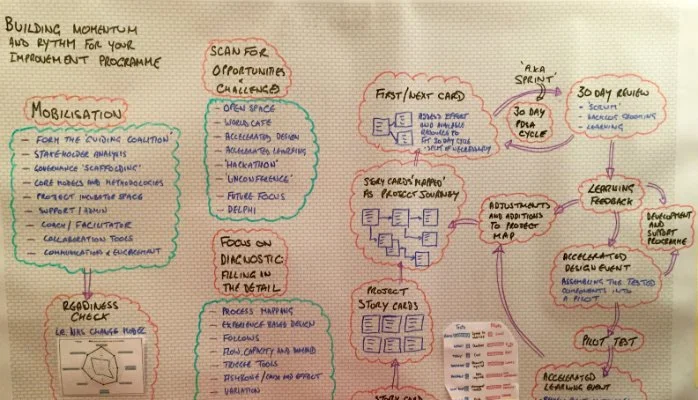 BUILDING MOMENTUM
AND RYTHM FOR YOUR
IMPROVEMENT PROGRAMME
MOBILISATION
- FORM THE 'GUIDING COALITION'
- STAKEHOLDER ANALYSIS
- GOVERNANCE 'SCAFFOLDING'
- CORE MODELS AND METHODOLOGIES
- PROJECT INCUBATOR SPACE
- SUPPORT / ADMIN
- COACH / FACILITATOR
- COLLABORATION TOOLS
- COMMUNICATION & ENGAGEMENT
READINESS
CHECK
I.E. NHS CHANGE MODEL
SCAN FOR
OPPORTUNITIES
& CHALLENGES
- OPEN SPACE
- WORLD CAFE
- ACCELERATED DESIGN
- ACCELERATED LEARNING
- 'HACKATHON'
- 'UNCONFERENCE'
- FUTURE FOCUS
- DELPHI
FOCUS ON
DIAGNOSTIC:
FILLING IN
THE DETAIL
- PROCESS MAPPING
- EXPERIENCE BASED DESIGN
- FOLLOWS
- FLOW, CAPACITY AND DEMAND
- TRIGGER TOOLS
- FISHBONE / CAUSE AND EFFECT
- VARIATION
FIRST/NEXT CARD
ASSESS EFFORT
AND AVAILABLE
RESOURCES TO
FIT 30 DAY CYCLE
- SPLIT IF NECESSARY
'A.K.A
SPRINT'
30 DAY
PDSA
CYCLE
30 DAY REVIEW
- 'SCRUM'
- BACKLOG GROOMING
- LEARNING
STORY CARDS 'MAPPED'
AS PROJECT JOURNEY
ADJUSTMENTS
AND ADDITIONS
TO PROJECT
MAP
LEARNING
FEEDBACK
DEVELOPMENT
AND
SUPPORT
PROGRAMME
ACCELERATED
DESIGN EVENT
ASSEMBLING THE TESTED
COMPONENTS INTO
A PILOT
PROJECT
STORY CARDS
PILOT TEST
ACCELERATED
LEARNING EVENT
STORY CARD